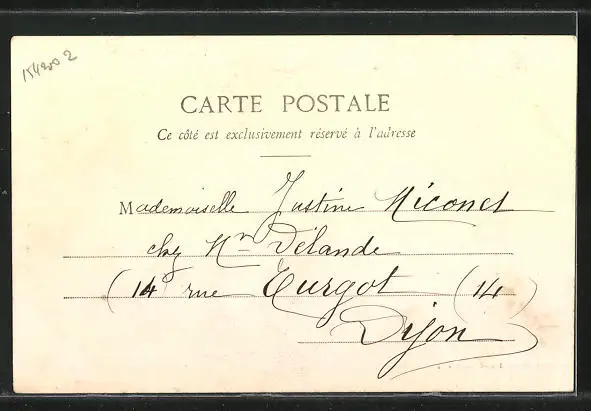 15420 2
CARTE POSTALE
Ce côté est exclusivement réservé à l'adresse
Mademoiselle Justine Miconet
chez Mr Délande
(14 rue Turgot (14)
Dijon